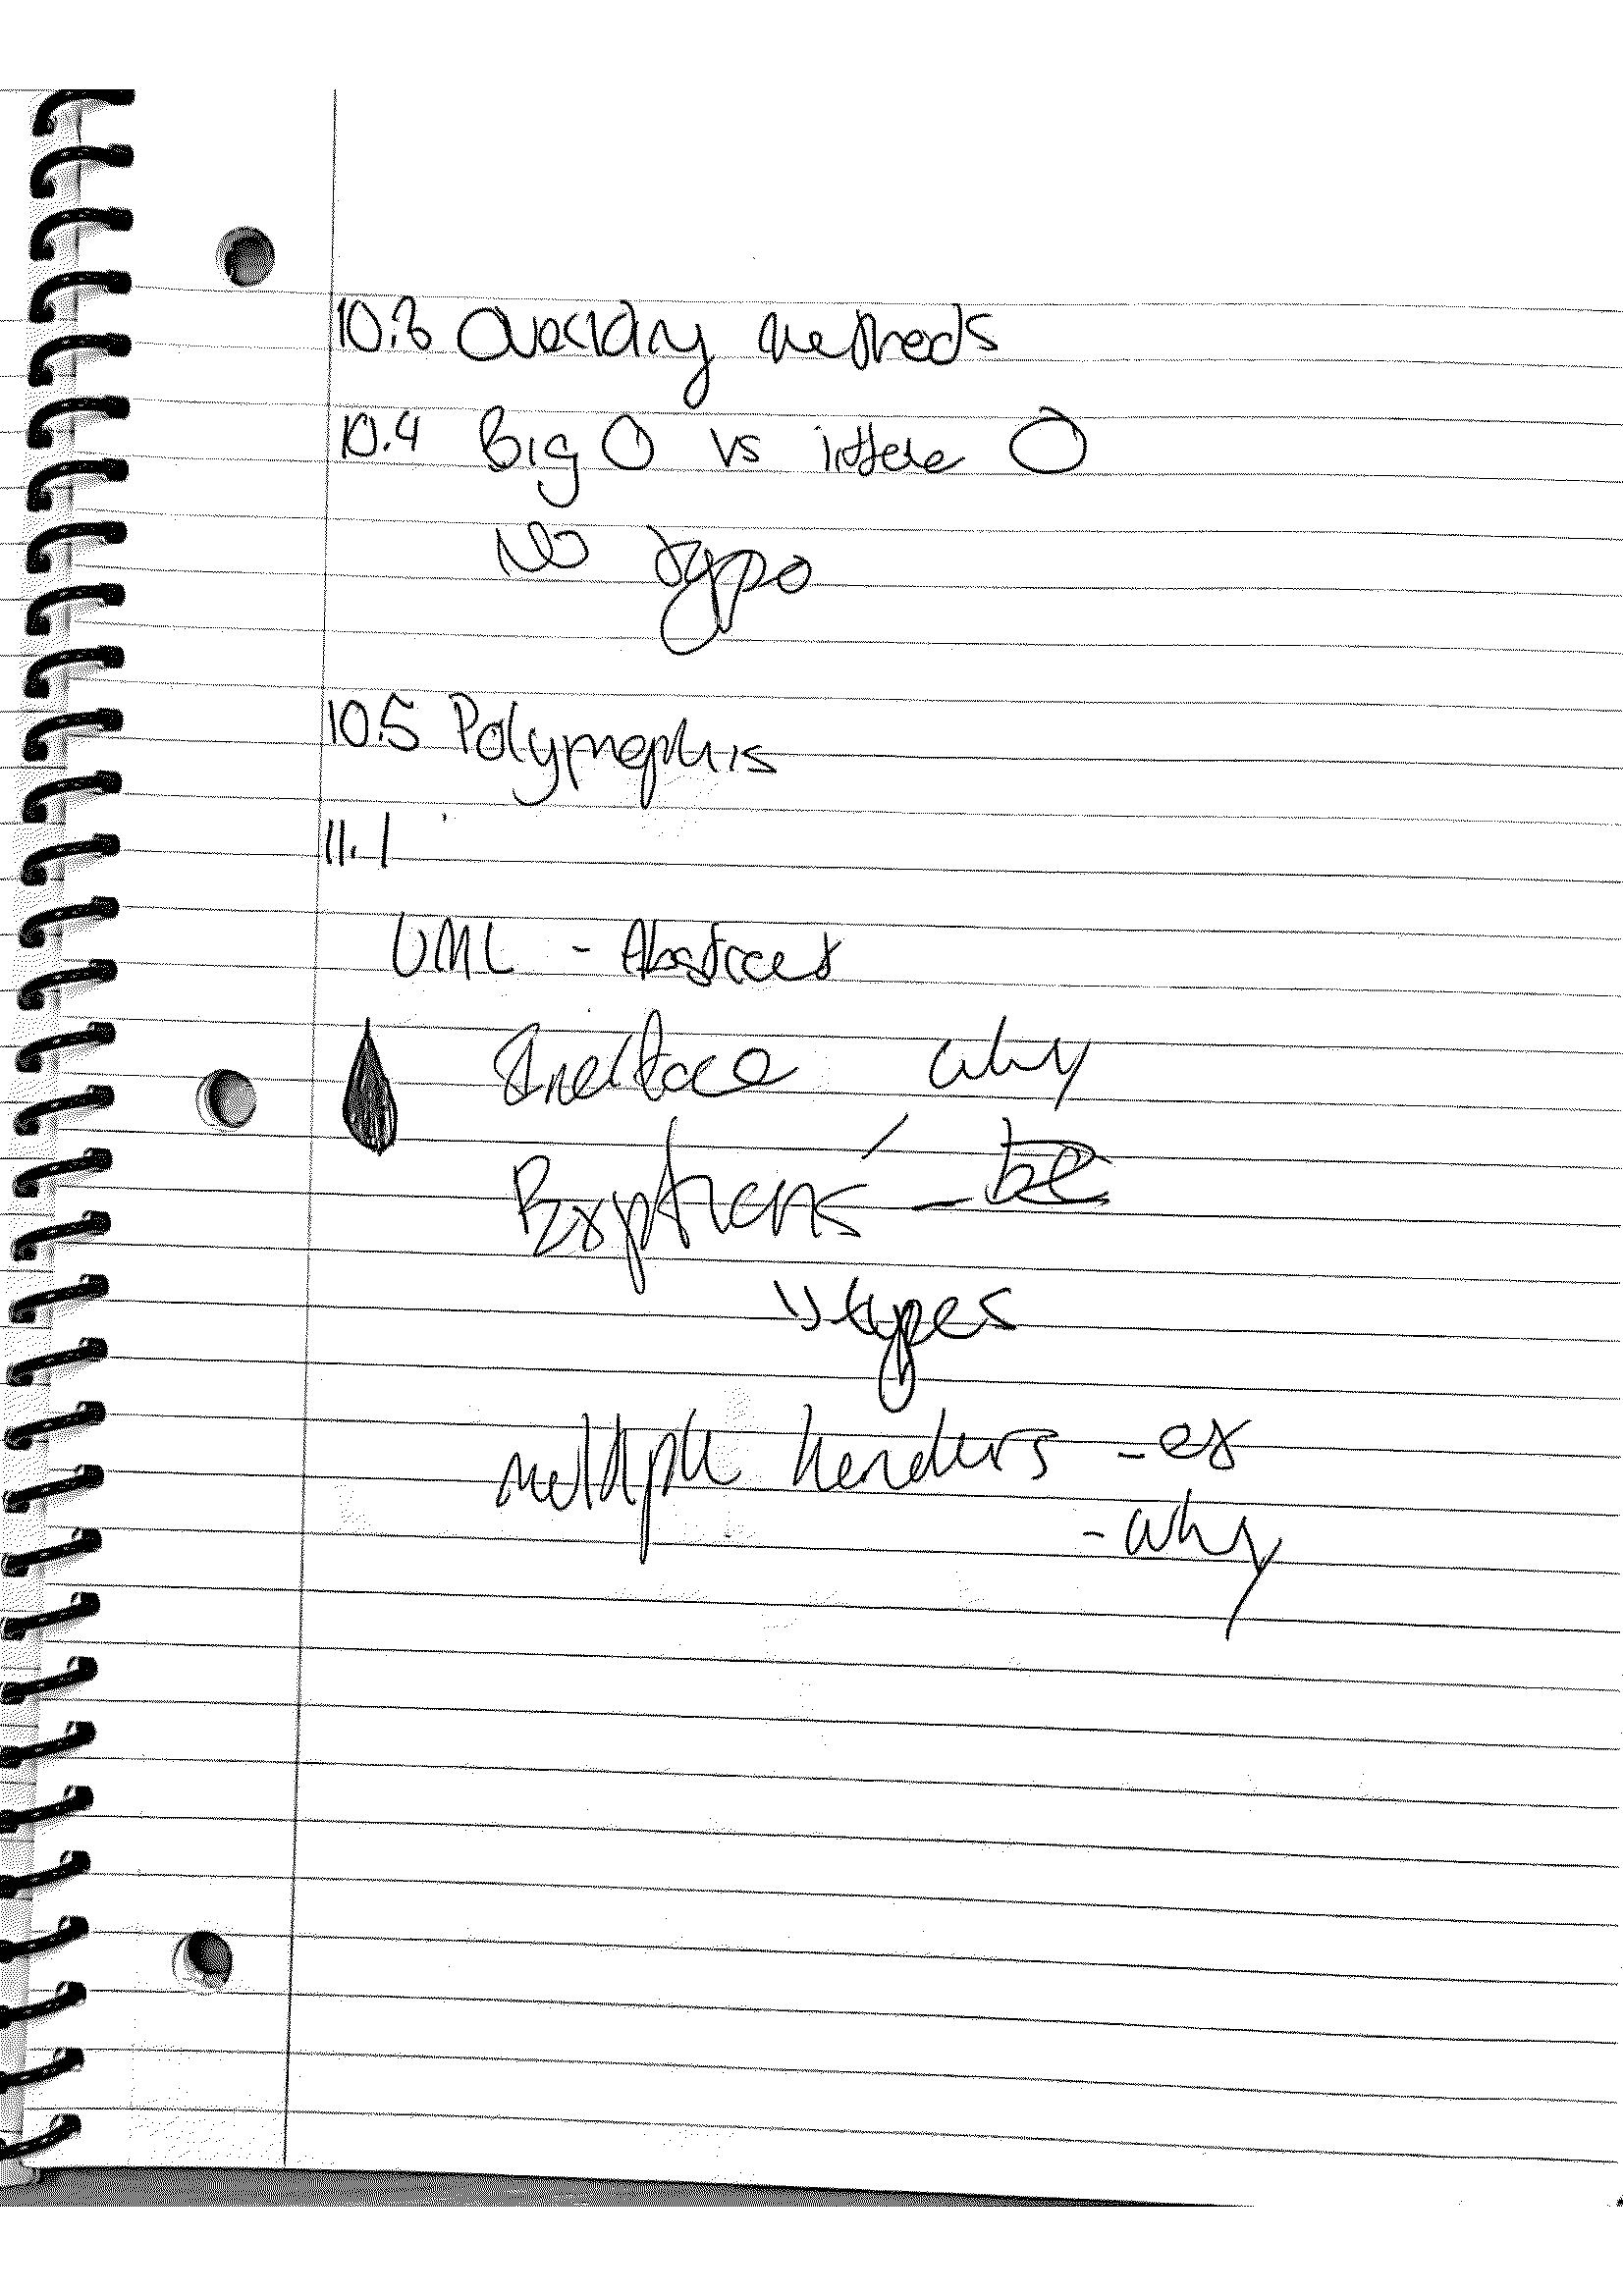 10.3 Overiding methods
10.4 Big O vs little O
No typo
10.5 Polymorphis
11.1
UML - Abstract
Interface why
Exptions -
types
multiple handlers - ex
- why